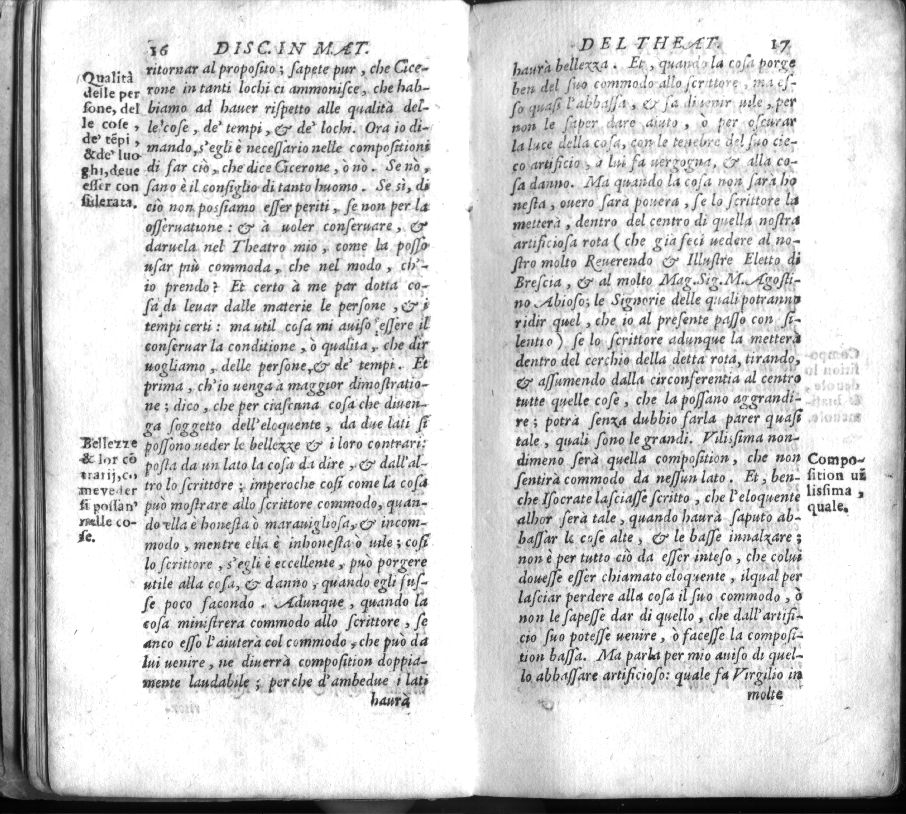 16 DISC. IN MAT.
Qualità
delle per
sone, del
le cose,
de' tēpi,
& de' luo
ghi, deue
esser con
siderata.
ritornar al proposito; sapete pur, che Cice-
rone in tanti lochi ci ammonisce, che hab-
biamo ad hauer rispetto alle qualità del-
le cose, de' tempi, & de' lochi. Ora io di-
mando, s'egli è necessario nelle compositioni
di far ciò, che dice Cicerone, ò nò. Se nò,
sano è il consiglio di tanto huomo. Se sì, di
ciò non possiamo esser periti, se non per la
osseruatione: & à uoler conseruare, &
daruela nel Theatro mio, come la posso
usar più commoda, che nel modo, ch'-
io prendo? Et certo à me par dotta co-
sa di leuar dalle materie le persone, & i
tempi certi: ma util cosa mi auiso essere il
conseruar la conditione, ò qualità, che dir
uogliamo, delle persone, & de' tempi. Et
prima, ch'io uenga à maggior dimostratio-
ne; dico, che per ciascuna cosa che diuen-
ga soggetto dell'eloquente, da due lati si
possono ueder le bellezze & i loro contrari:
posta da un lato la cosa da dire, & dall'al-
tro lo scrittore; imperoche così come la cosa
può mostrare allo scrittore commodo, quan-
do ella è honesta ò marauigliosa, & incom-
modo, mentre ella è inhonesta ò uile; così
lo scrittore, s'egli è eccellente, può porgere
utile alla cosa, & danno, quando egli fus-
se poco facondo. Adunque, quando la
cosa ministrerà commodo allo scrittore, se
anco esso l'aiuterà col commodo, che può da
lui uenire, ne diuerrà composition doppia-
mente laudabile; perche d'ambedue i lati
haurà
Bellezze
& lor cō
trarij, co
me veder
si possan'
nelle co-
se.
DEL THEAT. 17
haurà bellezza. Et, quando la cosa porge
ben del suo commodo allo scrittore, ma es-
so quasi l'abbassa, & fa diuenir uile, per
non le saper dare aiuto, ò per oscurar
la luce della cosa, con le tenebre del suo cie-
co artificio, à lui fa uergogna, & alla co-
sa danno. Ma quando la cosa non sarà ho
nesta, ouero sarà pouera, se lo scrittore la
metterà, dentro del centro di quella nostra
artificiosa rota (che già feci uedere al no-
stro molto Reuerendo & Illustre Eletto di
Brescia, & al molto Mag. Sig. M. Agosti-
no Abioso; le Signorie delle quali potranno
ridir quel, che io al presente passo con si-
lentio) se lo scrittore adunque la metterà
dentro del cerchio della detta rota, tirando,
& assumendo dalla circonferentia al centro
tutte quelle cose, che la possano aggrandi-
re; potrà senza dubbio farla parer quasi
tale, quali sono le grandi. Vilissima non-
dimeno serà quella composition, che non
sentirà commodo da nessun lato. Et, ben-
che Isocrate lasciasse scritto, che l'eloquente
alhor serà tale, quando haurà saputo ab-
bassar le cose alte, & le basse innalzare;
non è per tutto ciò da esser inteso, che colui
douesse esser chiamato eloquente, ilqual per
lasciar perdere alla cosa il suo commodo, ò
non le sapesse dar di quello, che dall'artifi-
cio suo potesse uenire, ò facesse la composi-
tion bassa. Ma parla per mio auiso di quel-
lo abbassare artificioso: quale fa Virgilio in
molte
Compo-
sition ui
lissima,
quale.